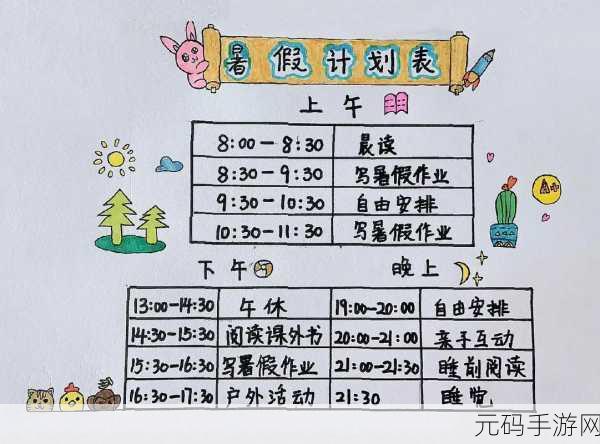 暑假计划表
上午
8:00-8:30 晨读
8:30-9:30 写暑假作业
9:30-10:30 自由安排
10:30-11:30 写暑假作业
A+
下午 晚上
13:00-14:30 午休 19:00-20:00 自由安排
14:30-15:30 阅读课外书 20:00-21:00 亲子互动
15:30-16:30 写暑假作业 21:00-21:30 睡前阅读
16:30-17:30 户外活动 21:30 睡觉
元码手游网